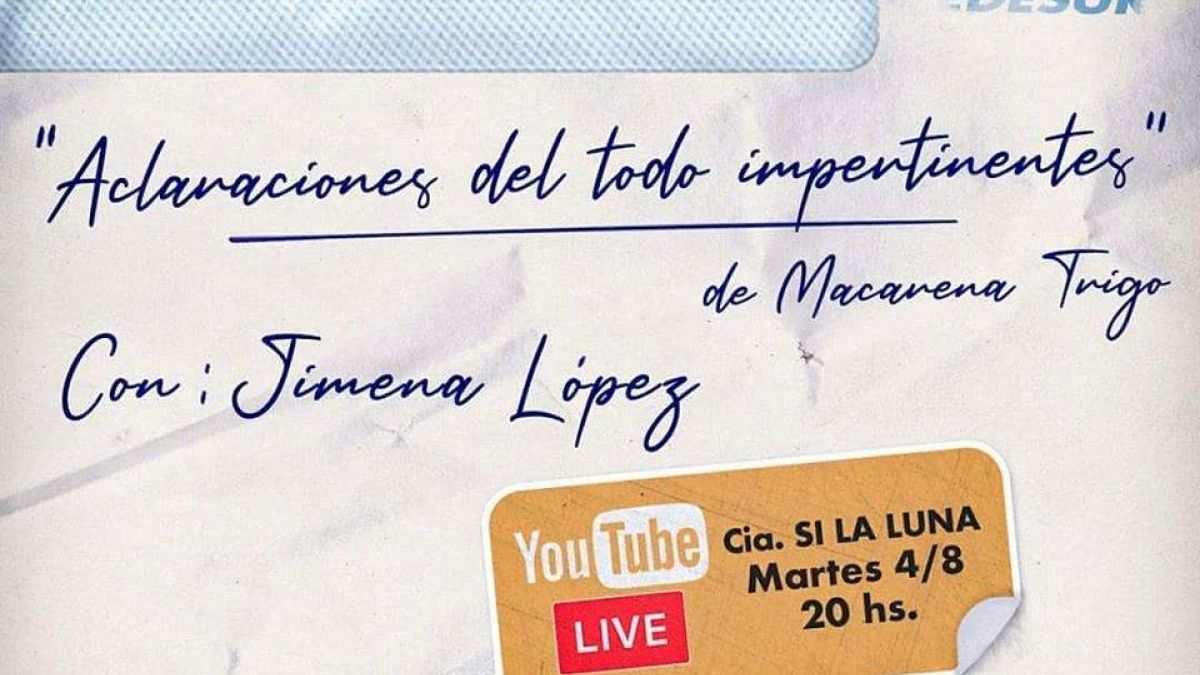 "Aclaraciones del todo impertinentes"
de Macarena Trigo
Con: Jimena López
YouTube
LIVE
Cia. SI LA LUNA
Martes 4/8
20 hs.